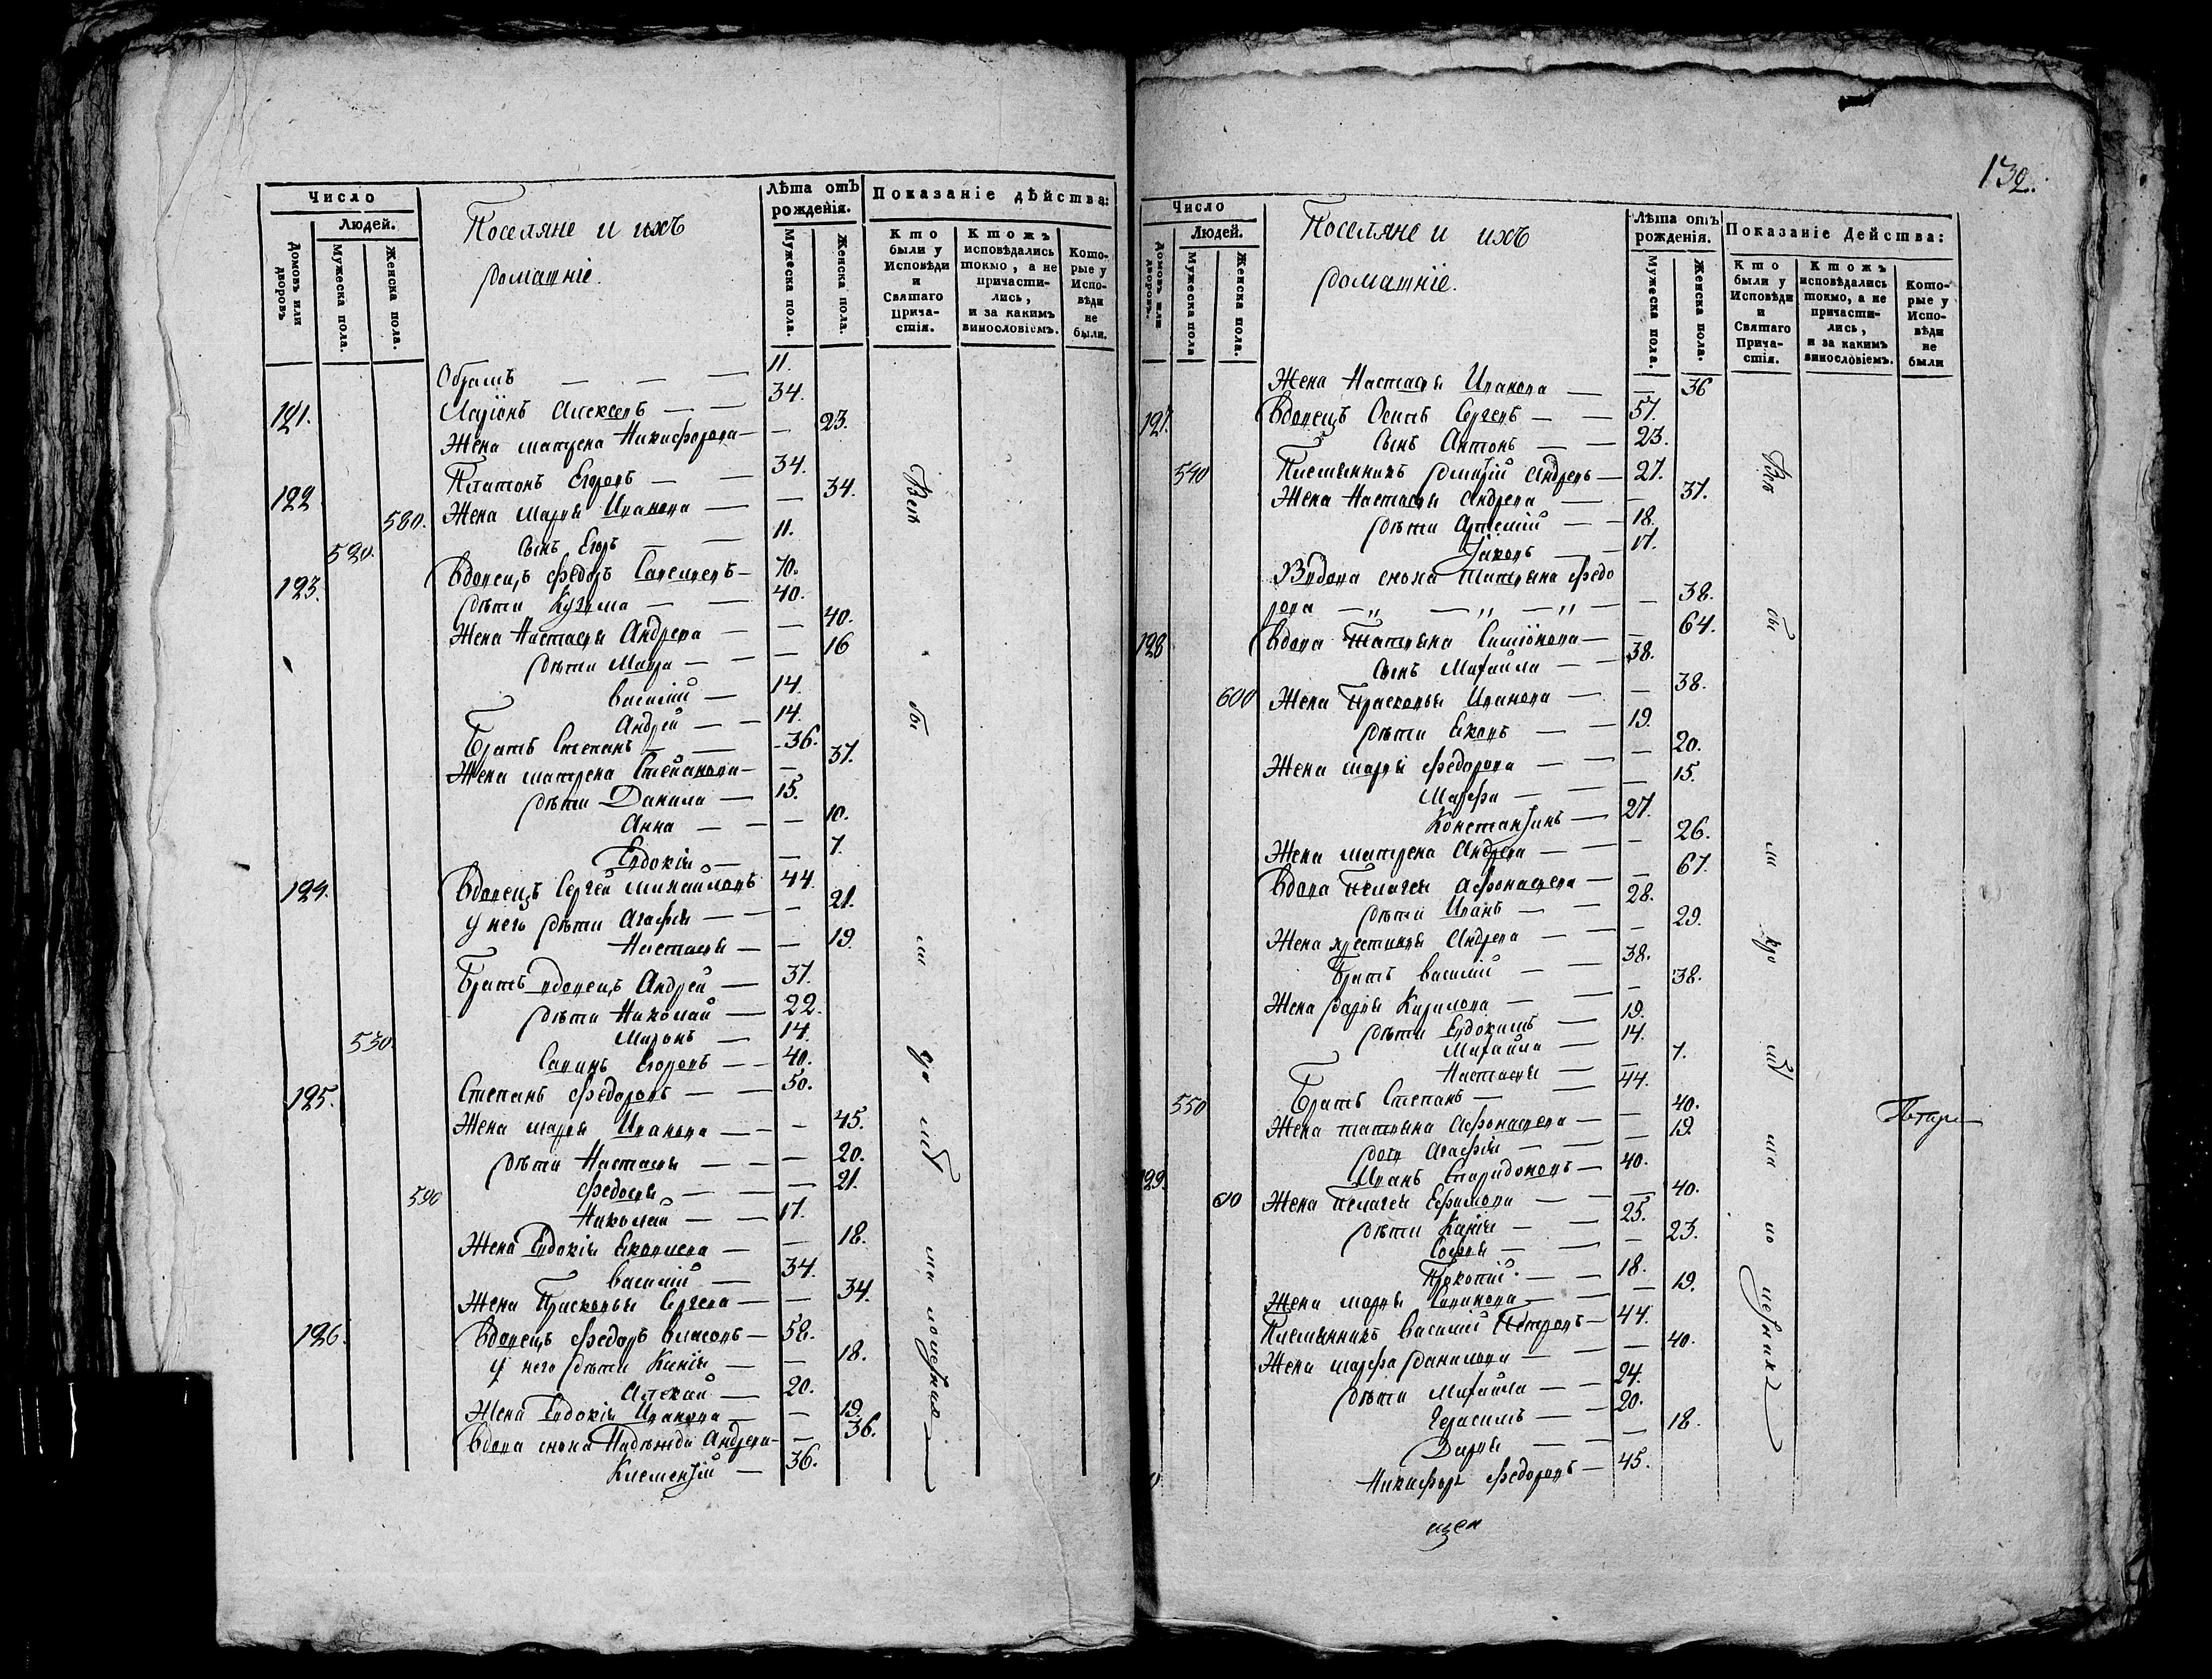 Число
Людей.
Домовъ или дворовъ
Мужеска пола.
Женска пола.
Поселяне и ихъ
домашніе.
Лѣта отъ рожденія.
Мужеска пола.
Женска пола.
Показаніе дѣйства:
Кто были у Исповѣди и Святаго Причастія.
Ктожъ исповѣдались токмо, а не причастились, и за какимъ винословіемъ.
Которые у Исповѣди не были.
11.
121. Ларіонъ Алексеевъ — — 34.
Жена матрена Никифорова — — 23.
122 Платонъ Егоровъ — — 34.
580. Жена марья Иванова — — 34.
520. сынъ Егоръ — — 11.
123. Вдовецъ федоръ Савельевъ — 70.
дѣти Кузьма — — 40.
Жена Настасья Андреева — — 40.
дѣти Мавра — — 16
василий — 14.
Андрей — — 14.
Братъ Степанъ — — 36.
Жена матрена Степанова — — 37.
дѣти Данила — 15.
Анна — — — 10.
Евдокія — — 7.
124. Вдовецъ Сергей михайловъ 44.
у него дѣти Агафья — — — 21.
Настасья — — 19.
Братъ вдовецъ Андрей — 37.
дѣти Николай — 22.
530. Миронъ — 14.
Егоровъ — — 40.
125. Степанъ федоровъ — — 50.
Жена марья Иванова — — — 45.
дѣти Настасья — — — 20.
590 федосья — — — 21.
Николай — — 17.
Жена Евдокія — — 18.
василий — 34.
Жена Прасковья Сергеева — — 34.
126. Вдовецъ федоръ власовъ — 58.
У него дѣти — — 18.
Алексей — 20.
Жена Евдокія Иванова — — 19.
Вдова сноха Надежда Андреева — — 36.
Климентий — 36.
Всѣ
бы
ли
у
132.
Число
Людей.
Домовъ или дворовъ.
Мужеска пола
Женска пола.
Поселяне и ихъ
домашніе.
Лѣта отъ рожденія.
Мужеска пола.
Женска пола.
Показаніе действа:
Кто были у Исповѣди и Святаго Причастія.
Ктожъ исповѣдались токмо, а не причастились, и за какимъ винословіемъ.
Которые у Исповѣди не были
Жена Настасья Иванова — — 36
127. Вдовецъ Осипъ Сергеевъ — — 57.
Сынъ Антонъ — — 23.
540 Племянникъ Андреевъ — 27.
Жена Настасья Андреева — — 37.
дѣти Артемій — — 18.
Яковъ — — 17.
Вдова сноха Татьяна федо
рова — „ — „ — „ — — 38.
128 Вдова Татьяна Симіонова — — 64.
Сынъ Михайла — — 38.
600 Жена Прасковья Иванова — — 38.
дѣти — — 19.
Жена марья федорова — — — 20.
Марфа — — — 15.
Константинъ — 27.
Жена матрена Андреева — — — 26.
Вдова Пелагея Афонасьева — — 67.
дѣти Иванъ — — 28.
Жена христинья Андреева — — — 29.
Братъ василий — — 38.
Жена дарья Кирилова — — — 38.
дѣти Евдокимъ — 19.
Михайла — 14.
Настасья — — 7.
550 Братъ Степанъ — — 44.
Жена татьяна Афонасьева — — 40.
дочь Агафья — — — 19.
129. Иванъ Спиридоновъ — 40.
610 Жена Пелагея Ефимова — — — 40.
дѣти — — 25.
Софья — — — 23.
Прокопий — — 18.
Жена марья — — 19.
Племянникъ Василий Петровъ — 44.
Жена марфа Данилова — — — 40.
дѣти Михайла — — 24.
Герасимъ — — 20.
Дарья — — — 18.
Никифоръ федоровъ — 45.
Всѣ
бы
ли
жена